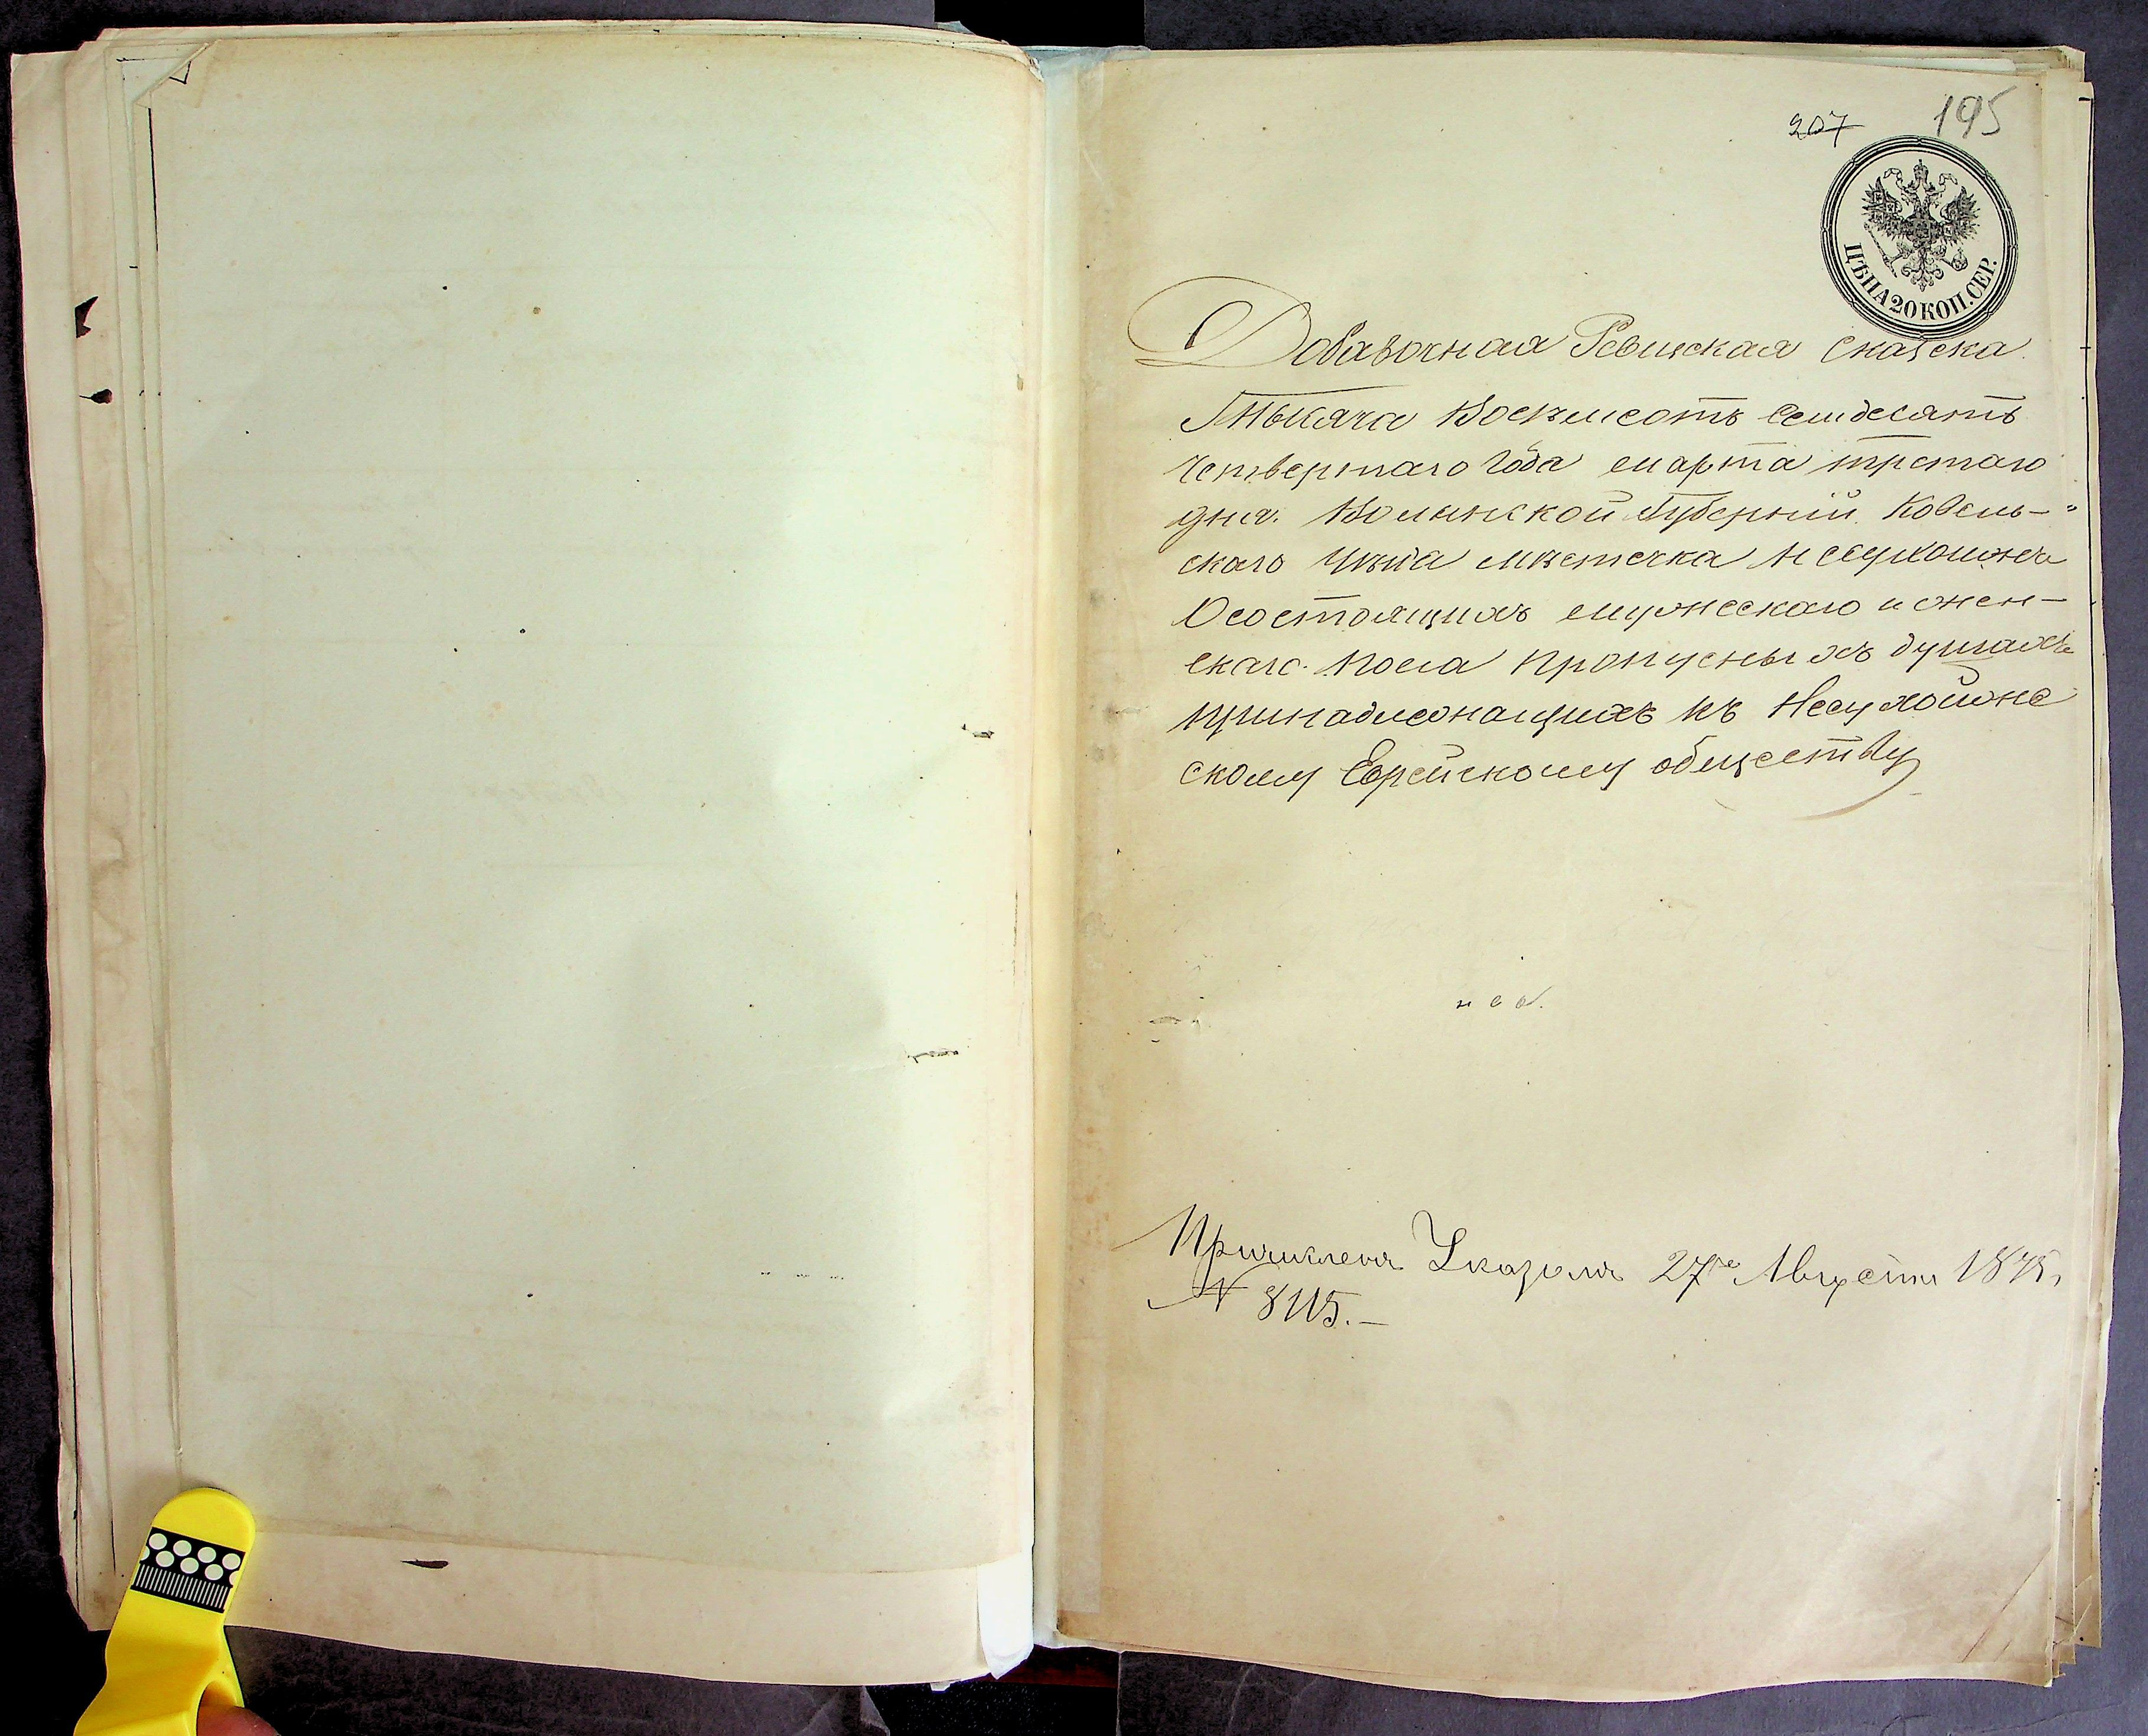 207 195
ЦѢНА 20 КОП. СЕР.
Добавочная Ревиская Сказска
Тысяча Восемсотъ Семдесятъ
Четвертаго Года марта третаго
дня. Волынской Губерніи. Ковель-
скаго Уѣзда мѣстечка Несухоижа
О состоящихъ мужескаго и жен-
скаго. пола пропусныхъ душахъ
принадлежащихъ къ Несухоижс
скому Еврейскому обществу
Причислена Указомъ 27го Августа 1875,
N 8115.-